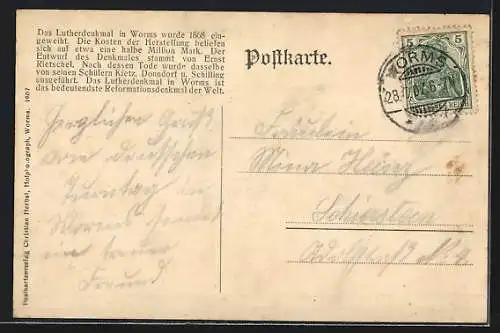 Das Lutherdenkmal in Worms wurde 1868 ein-
geweiht. Die Kosten der Herstellung beliefen
sich auf etwa eine halbe Million Mark. Der
Entwurf des Denkmales stammt von Ernst
Rietschel. Nach dessen Tode wurde dasselbe
von seinen Schülern Kietz, Donsdorf u. Schilling
ausgeführt. Das Lutherdenkmal in Worms ist
das bedeutendste Reformationsdenkmal der Welt.
Postkarte.
5 5
WORMS
Herzlichen Gruß
vom deutschen
Turntag in
Worms sendet
ein treuer
Freund
Fräulein
Mina
Postkartenverlag Christian Herbst, Hofphotograph, Worms. 1907